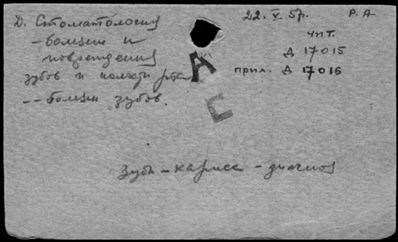 Д. Стоматология
22. V. 57г.
Р. А
– болезни и
повреждения
зубов и полости рта
-- Болезни зубов.
чит.
Д 17015
прил. Д 17016
А
С
Зубы – кариес – диагноз